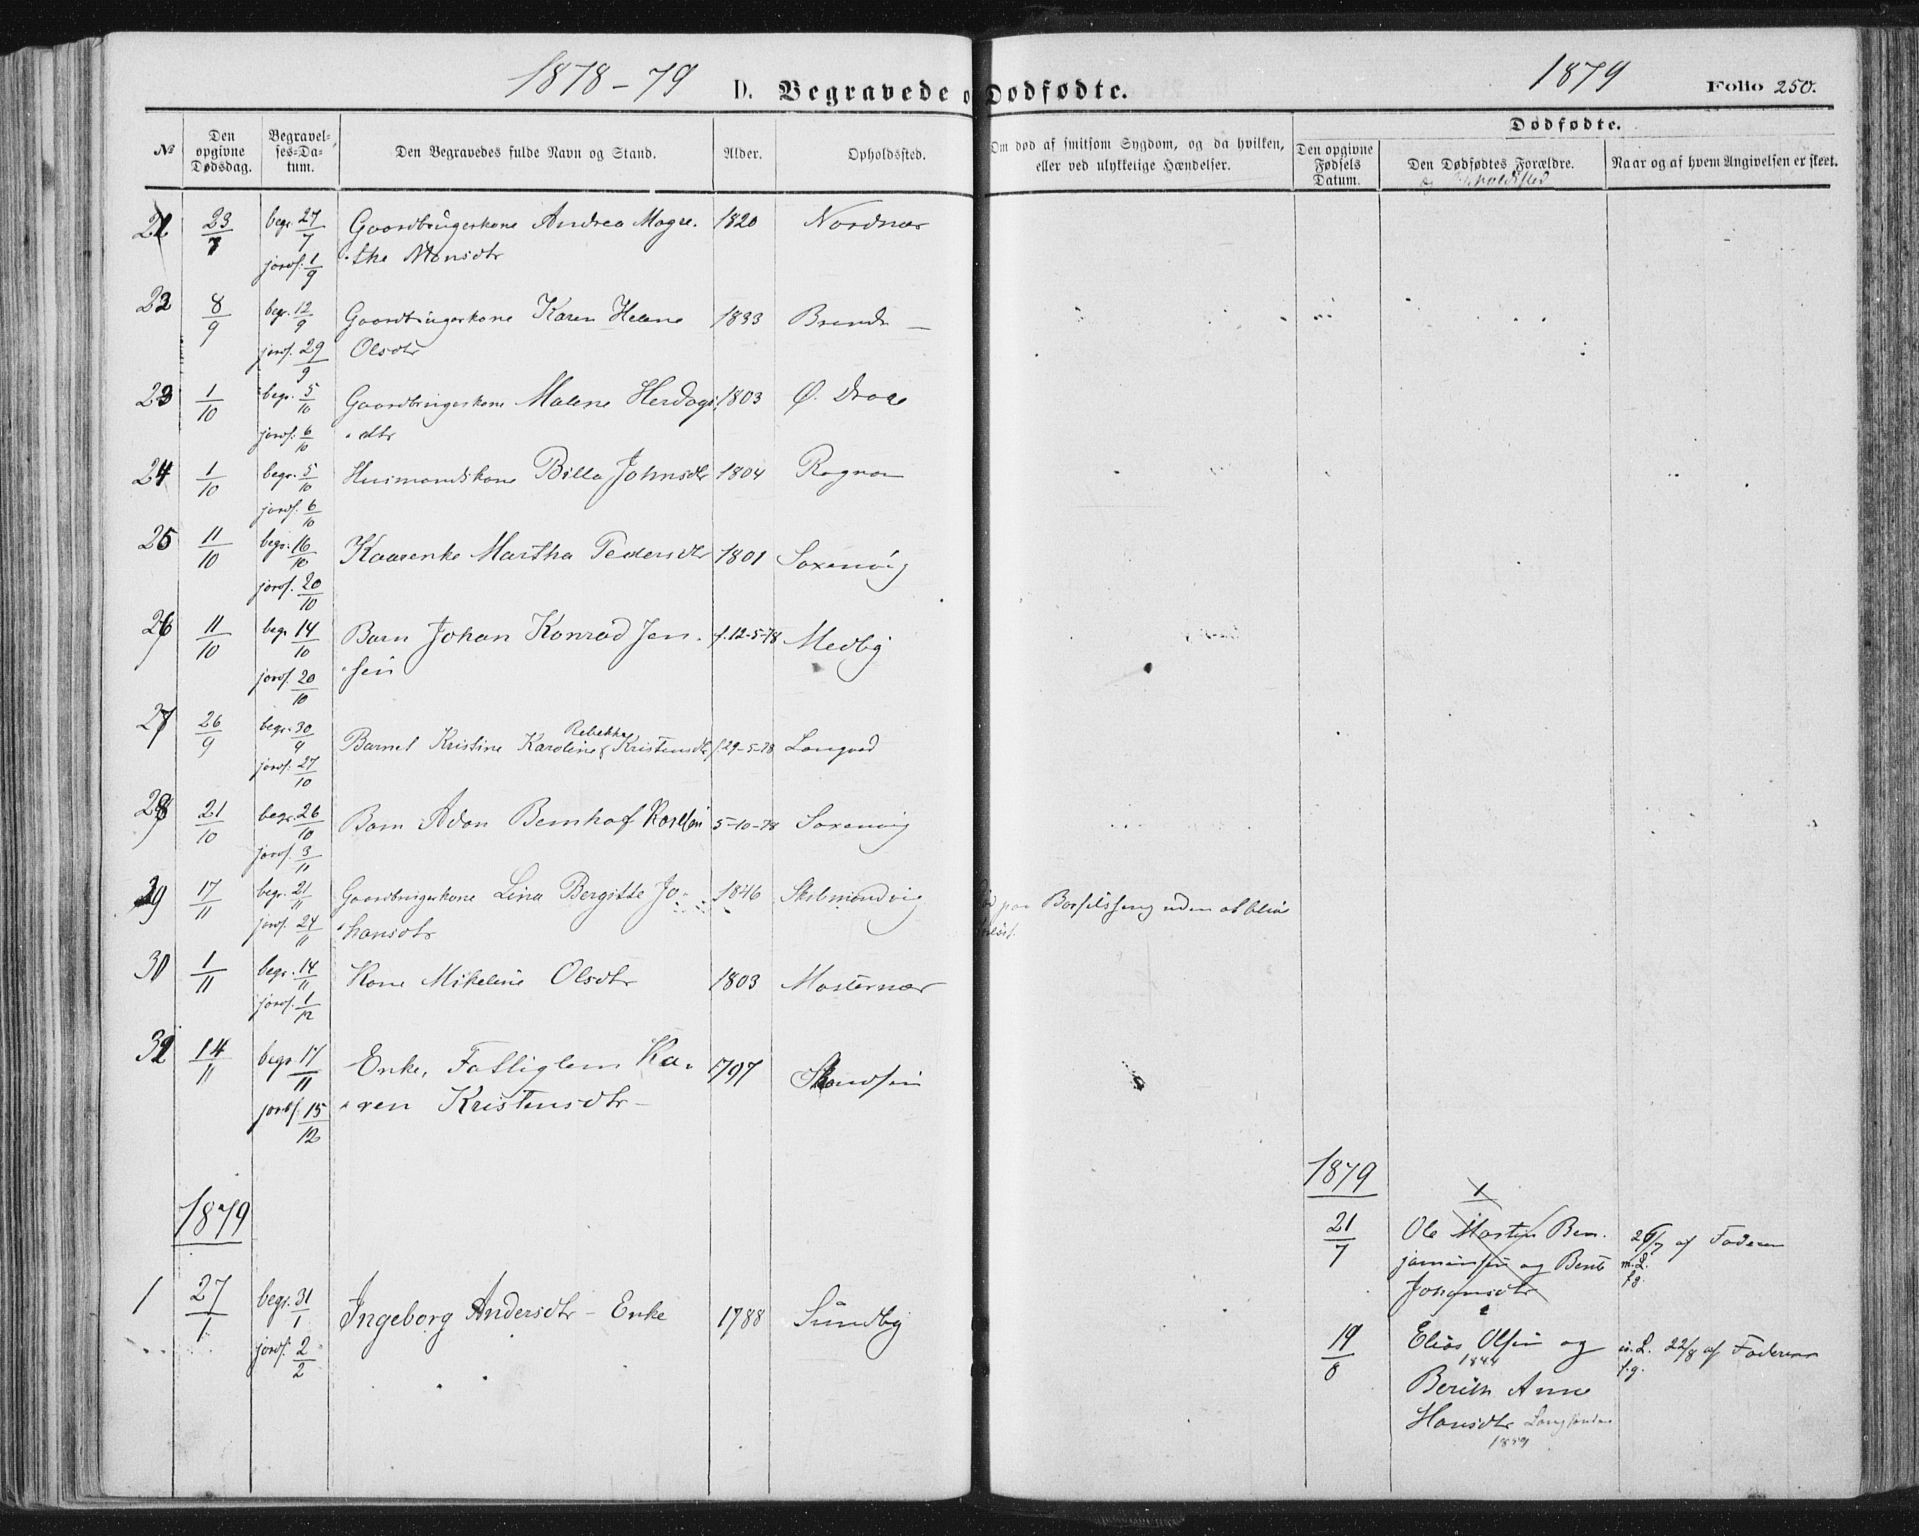 1878-79
D. Begravede o
Dødfødte.
1879
Folio 250.
№
Den opgivne Dødsdag.
Begravelses-Datum.
Den Begravedes fulde Navn og Stand.
Alder.
Opholdssted.
Om død af smitsom Sygdom, og da hvilken, eller ved ulykkelige Hændelser.
Dødfødte.
Den opgivne Fødsels Datum.
Den Dødfødtes Forældre.
Naar og af hvem Angivelsen er skeet.
23/7 begr. 27/7 Gaardbrugerkone Andrea Magre- 1820 Nordnær
jordf. 1/9 -the Monsdtr
8/9 begr. 12/9 Gaardbrugerkone Karen Helene 1833
jordf. 29/9 Olsdtr
23 1/10 begr. 5/10 Gaardbrugerkone Malene Herdags 1803
jordf. 6/10 -dtr
24 1/10 begr. 5/10 Husmandskone Billa Johnsdtr 1804 Rognan
jordf. 6/10
25 11/10 begr. 16/10 Kaarenke Martha Pedersdtr 1801 Saxenvig
jordf. 20/10
26 11/10 begr 14/10 Barn Johan Konrad Jen- f. 12-5-78 Medby
jordf. 20/10 -sen
27 26/9 begr. 30/9 Barnet Kristine Karoline Rebekka Kristensdtr f. 29-5-78
jordf. 27/10
28 21/10 begr. 26/10 Barn Adon Bernhof Karlsen 5-10-78 Saxenvig
jordf. 3/11
29 17/11 begr. 21/11 Gaardbrugerkone Lina Bergitte Jo- 1846 Skelmondvig
paa Barselseng uden at blive
jordf. 24/11 -hansdtr
30 1/11 begr. 14/11 Kone Mikeline Olsdtr 1803 Masternær
jordf. 1/12
14/11 begr 17/11 Enke, Fattiglem Ka- 1797
jordf. 15/12 -ren Kristensdtr
1879
1 27/1 begr. 31/1 Ingeborg Andersdtr - Enke 1788 Sundby
jordf. 2/2
1879
1
21/7 Ole Martin Ben- af Faderen
jaminsen og Berit
Johansdtr
19/8 Elias Olsen og 22/8 af Faderen
1844
Berith Anne
Hansdtr